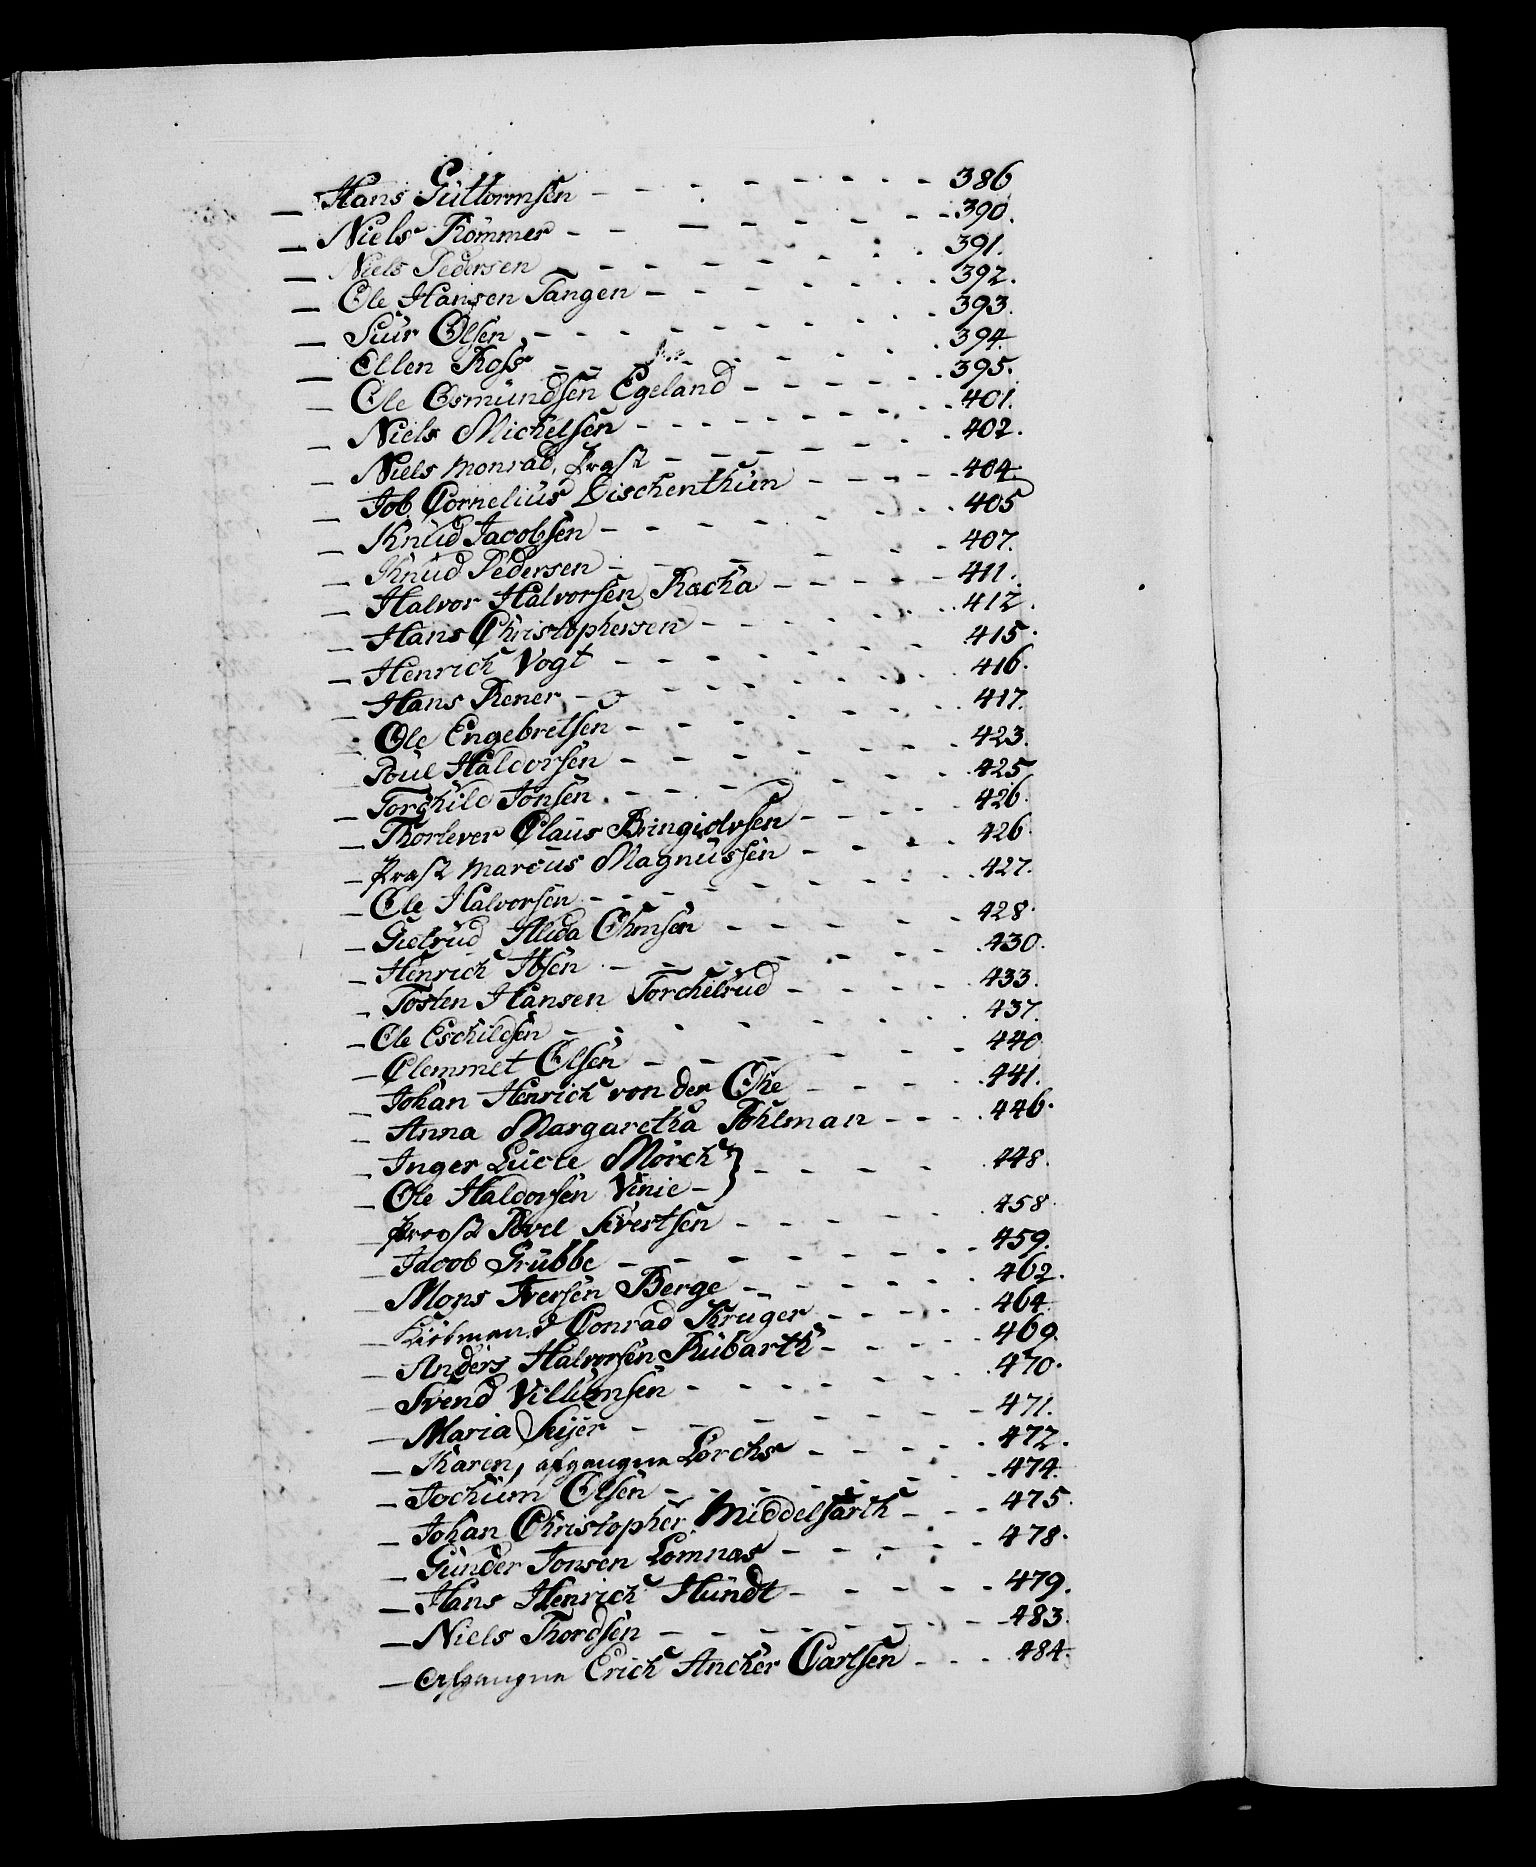 — Hans Guttormsen - - - - - - - - - 386
— Niels Römmer - - - - - - - - 390.
— Niels Pedersen - - - - - - - - 391.
— Ole Hansen Tangen - - - - - - - 392.
— Siur Olsen - - - - - - - - 393.
— Ellen Ross - - - - - - - 394.
— Ole Osmundsen Egeland - - - - - - 395.
— Niels Michelsen - - - - - - - - 401.
— Niels Monrad, Præst - - - - - - - 402.
— Job Cornelius Dischenthun - - - - - 404.
— Knud Jacobsen - - - - - - - - 405
— Knud Pedersen - - - - - - - - 407.
— Halvor Halvorsen Racka - - - - - 411.
— Hans Christophersen - - - - - - - 412.
— Henrich Vogt - - - - - - - - 415.
— Hans Rener - - - - - - - - 416.
— Ole Engebretsen - - - - - - - - 417.
— Poul Haldorsen - - - - - - - - 423.
— Torchild Jonsen - - - - - - - - 425
— Thorlever Claus Bringiolvsen - - - - 426.
— Præst Marcus Magnussen - - - - 426.
— Ole Halvorsen - - - - - - - - 427.
— Gietrud Alida Ohmsen - - - - - - 428.
— Henrich Ibsen - - - - - - - - 430.
— Tosten Hansen Torchelrud - - - - - 433.
— Ole Eschildsen - - - - - - - - 437.
— Clemmet Olsen - - - - - - - 440
— Johan Henrich von der Ohe - - - - - 441.
— Anna Margaretha Pohlman - - - - 446.
— Inger Lucie Mörch }
— Ole Haldorsen Vinie - } - - - - - 448.
— Provst Povel Sivertsen - - - - - - 458.
— Jacob Grubbe - - - - - - - - 459.
— Mons Iversen Berge - - - - - - 462.
— Kiøbmand Conrad Kruger - - - - - 464.
— Anders Halvorsen Rubarth - - - - - 469.
— Svend Villumsen - - - - - - - 470.
— Maria Seijer - - - - - - - - 471.
— Karen, afgangne Lorchs - - - - - 472.
— Jochum Olsen - - - - - - - - 474.
— Johan Christopher Middelfarth - - - 475.
— Gunder Jonsen Lomnæs - - - - - - 478.
— Hans Henrich Hundt - - - - - 479.
— Niels Thordsen - - - - - - - - 483.
— Afgangne Erich Ancher Carlsen - - - 484.